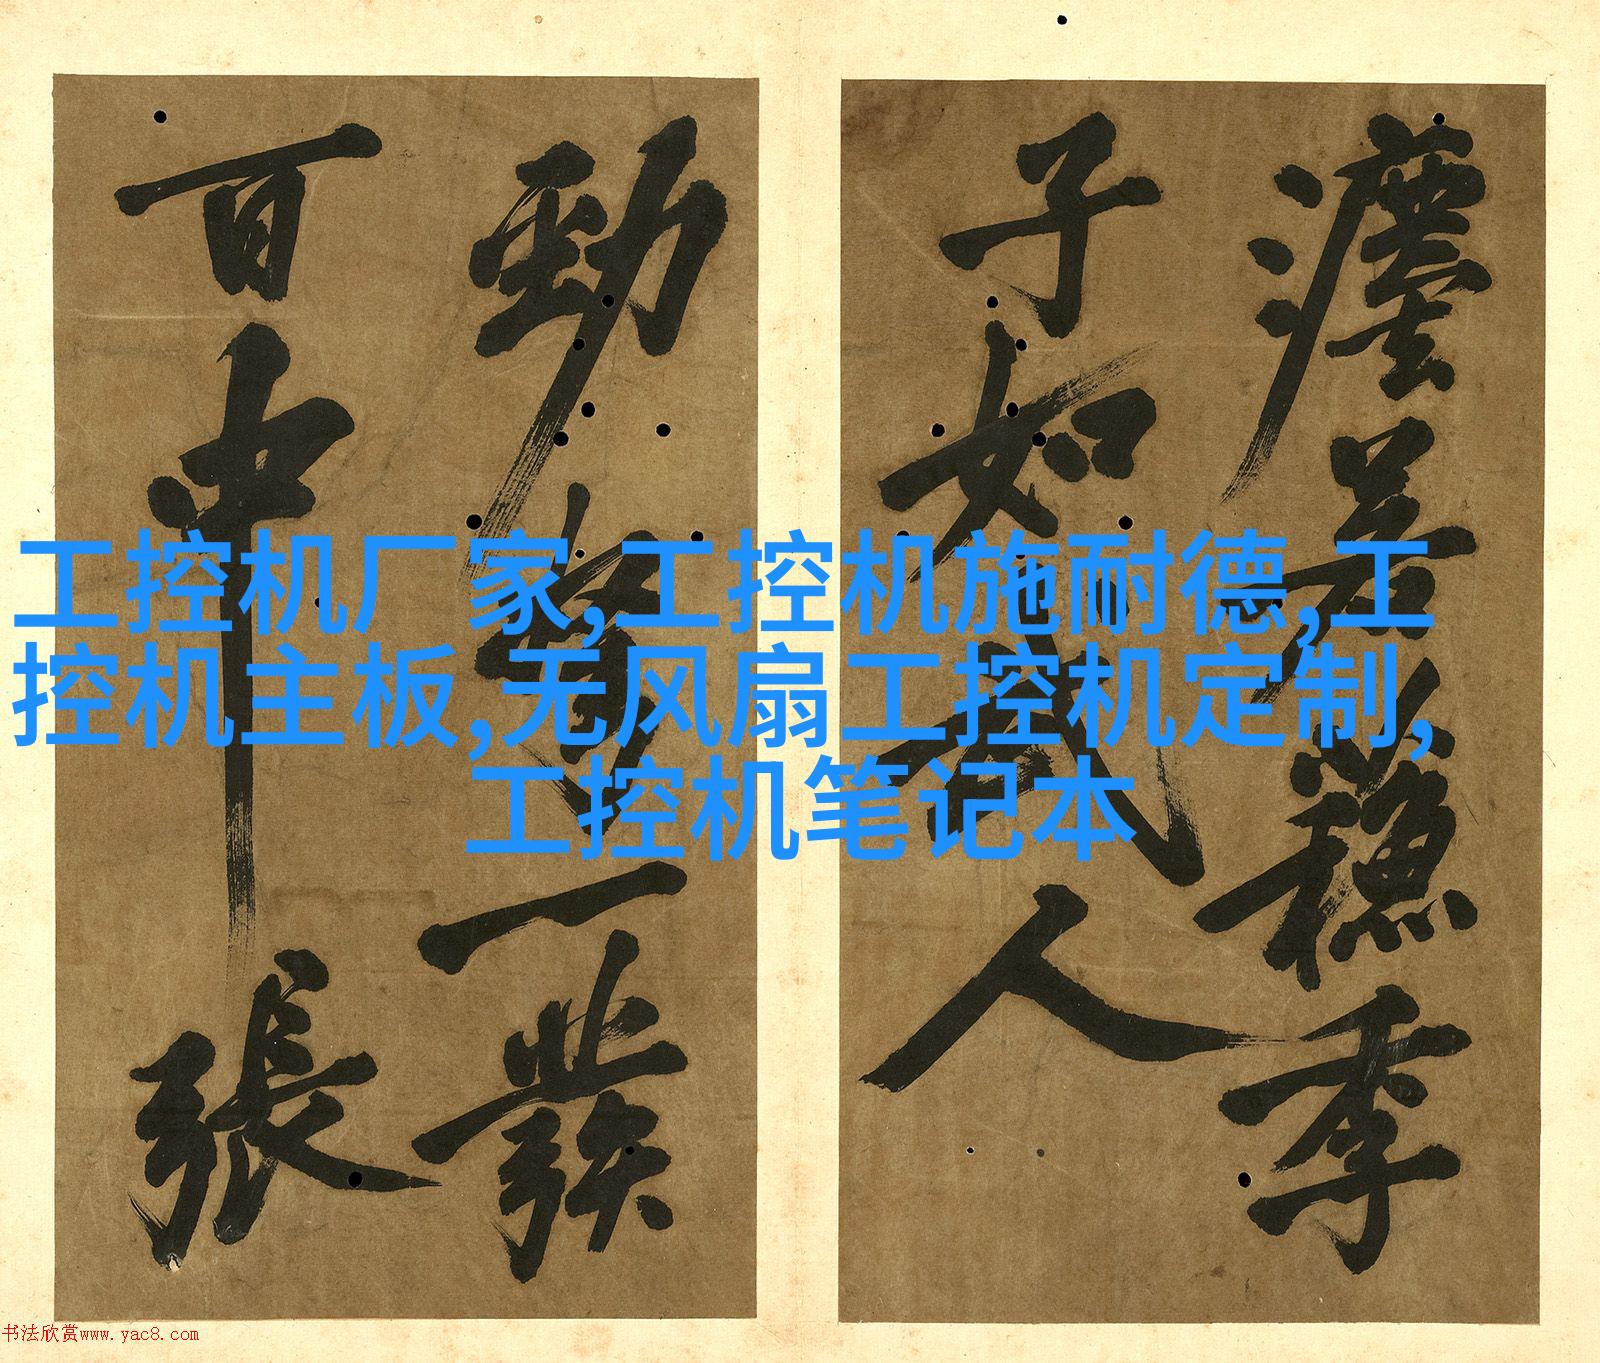 瀍差穩季
子如武人
勁弩一發
百中張
工控机厂家,工控机施耐德,工
控机主板,无风扇工控机定制,
工控机笔记本
书法欣赏www.yac8.com